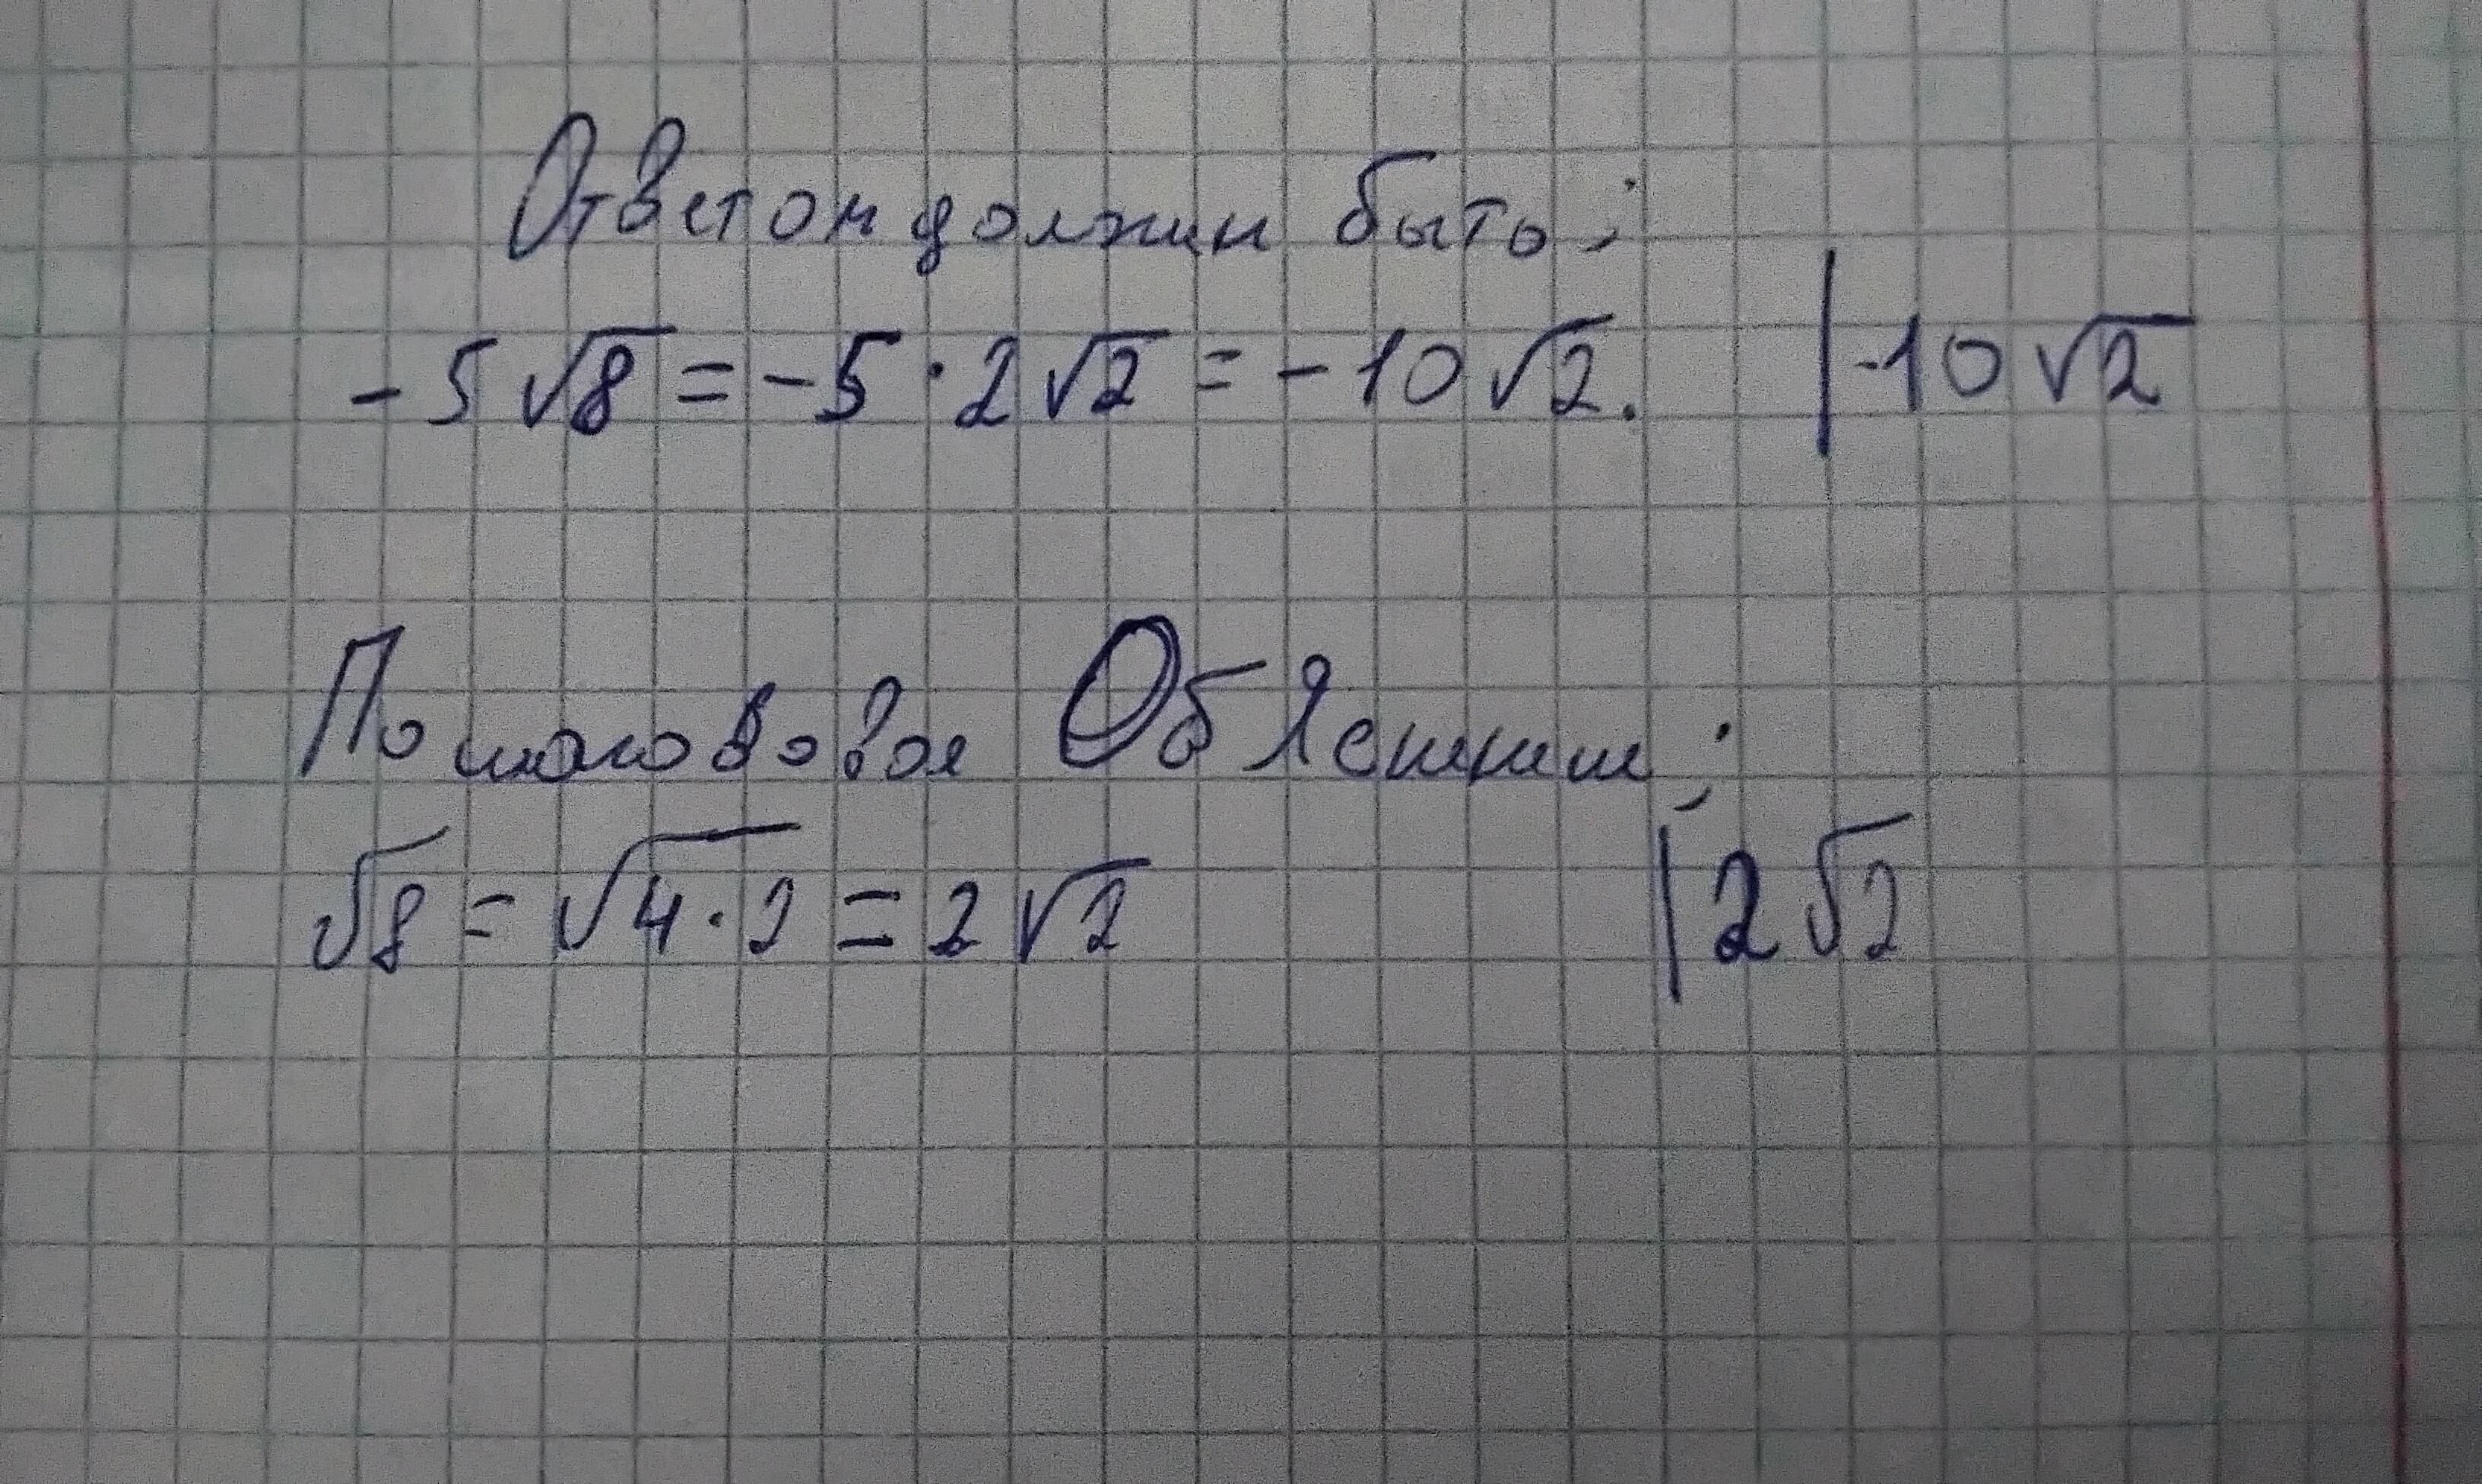 Ответом должен быть:
-5√8 = -5·2√2 = -10√2. | -10√2
Пошаговое Объяснение:
√8 = √4·2 = 2√2 | 2√2